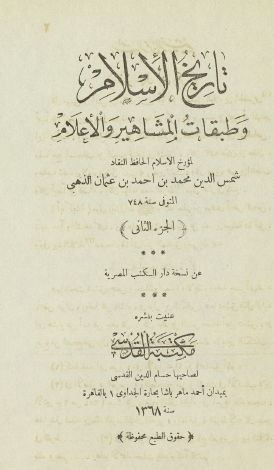 تاريخ الإسلام
وطبقات المشاهير والأعلام
لمؤرخ الاسلام الحافظ النقاد
شمس الدين محمد بن أحمد بن عثمان الذهبي
المتوفى سنة ٧٤٨
﴿ الجزء الثانى ﴾
* * *
عن نسخة دار الكتب المصرية
* * *
عنيت بنشره
مكتبة القدسي
لصاحبها حسام الدين القدسى
بميدان أحمد ماهر باشا بحارة الجداوى ١ بالقاهرة
سنة ١٣٦٨
﴿ حقوق الطبع محفوظة ﴾